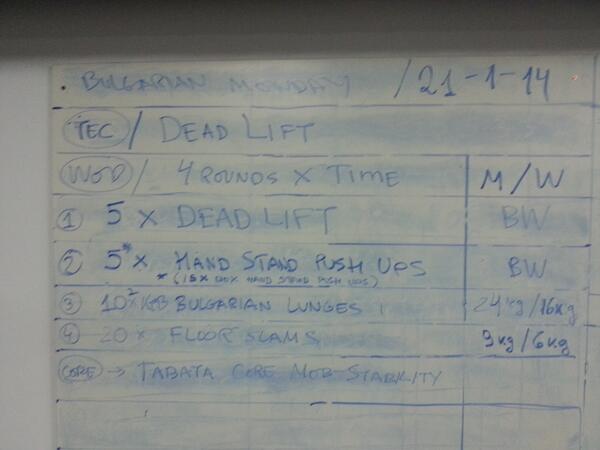 . BULGARIAN MONDAY / 21-1-14
TEC / DEAD LIFT
WOD / 4 ROUNDS X TIME M/W
1 5 X DEAD LIFT BW
2 5* X HAND STAND PUSH UPS BW
* (15X BOX HAND STAND PUSH UPS)
3 10 X KB BULGARIAN LUNGES 24kg/16kg
4 20 X FLOOR SLAMS 9kg/6kg
CORE → TABATA CORE MOB-STABILITY